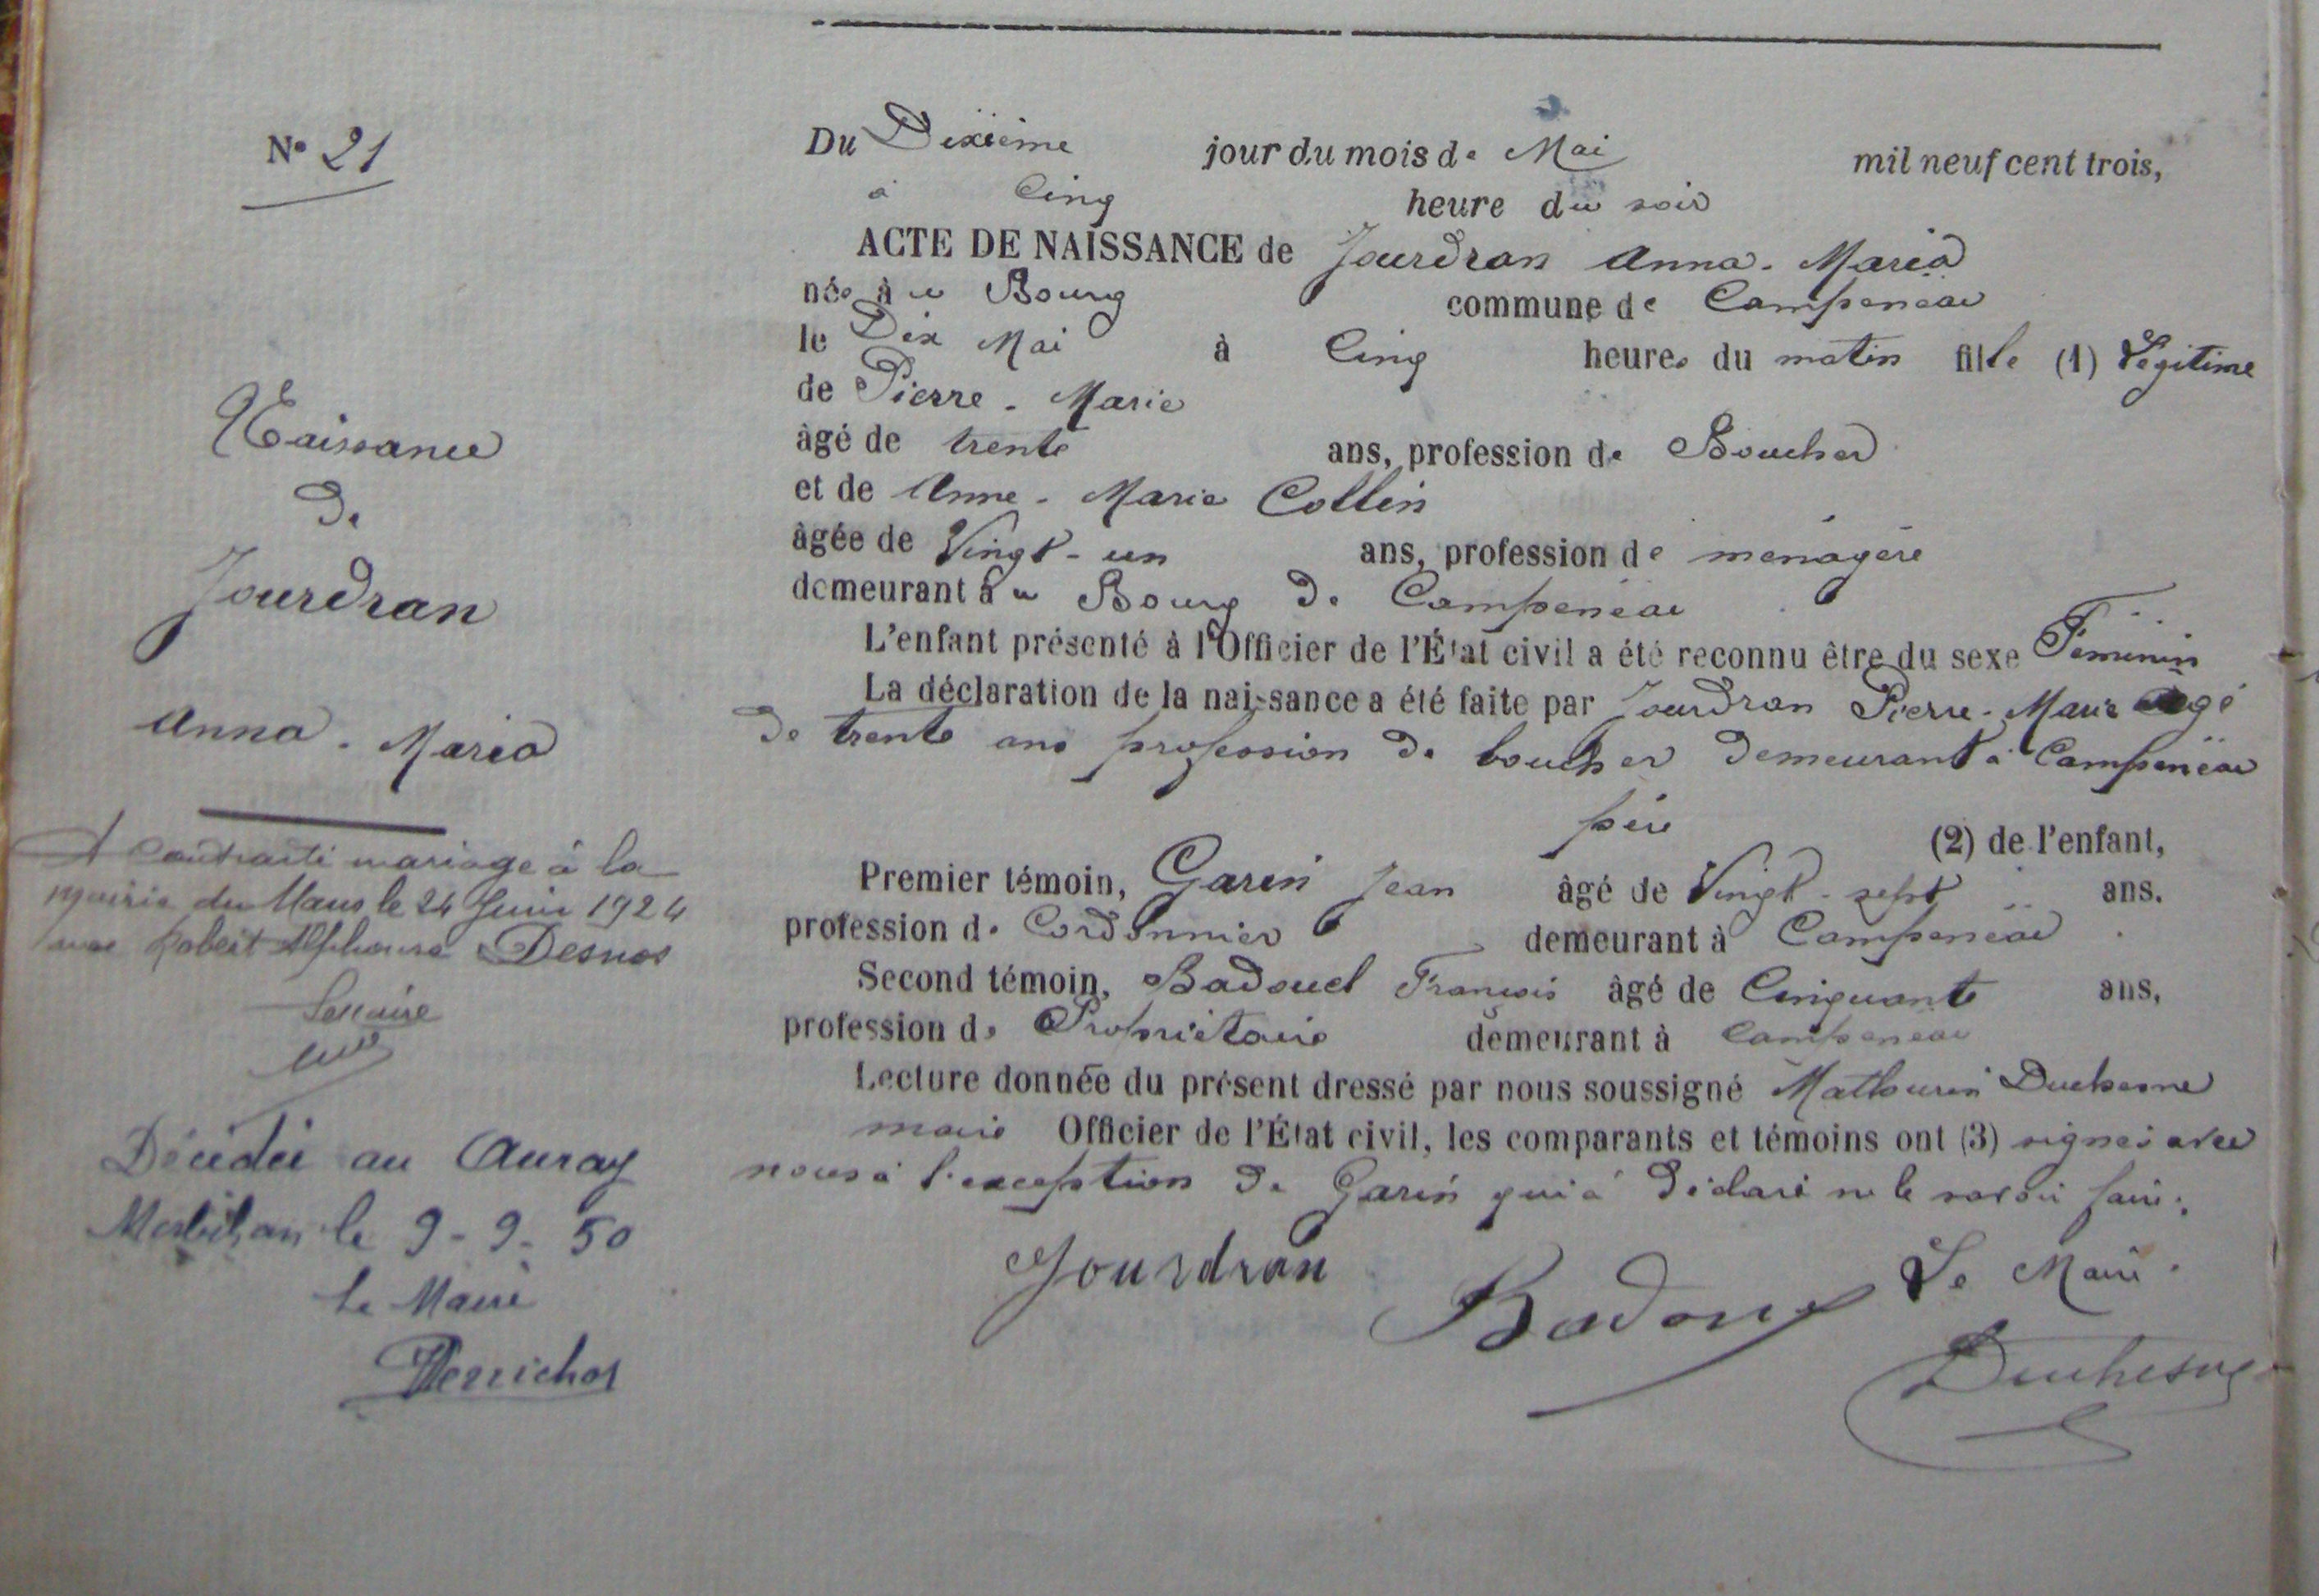 N° 21
Naissance
de
Jourdran
Anna-Maria
A contracté mariage à la
mairie du Mans le 24 Juin 1924
avec Robert Alphonse Desnos
Décédée au Auray
Morbihan le 9-9-50
le Maire
Du Dixième jour du mois de Mai mil neuf cent trois,
à Cinq heure du soir
ACTE DE NAISSANCE de Jourdran Anna-Maria
née à u Bourg commune de Campénéac
le Dix Mai à Cinq heures du matin fille (1) Légitime
de Pierre-Marie
âgé de trente ans, profession de Boucher
et de Anne-Marie Collin
âgée de Vingt-un ans, profession de ménagère
demeurant à u Bourg de Campénéac
L'enfant présenté à l'Officier de l'État civil a été reconnu être du sexe Féminin
La déclaration de la naissance a été faite par Jourdran Pierre-Marie âgé
de trente ans profession de boucher demeurant à Campénéac
père (2) de l'enfant,
Premier témoin, Garin Jean âgé de Vingt-sept ans.
profession de Cordonnier demeurant à Campénéac
Second témoin, Badouel François âgé de Cinquante ans,
profession de Propriétaire demeurant à Campénéac
Lecture donnée du présent dressé par nous soussigné Mathurin Duchesne
maire Officier de l'État civil, les comparants et témoins ont (3) signés avec
nous à l'exception de Garin qui a déclaré ne le savoir faire.
Jourdran
Badouel
Le Maire
Duchesne